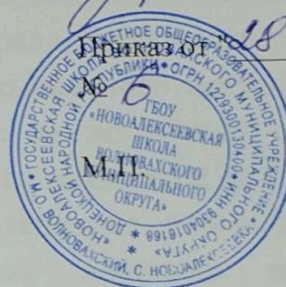 Приказ от "28
№ 6
М.П.
ГОСУДАРСТВЕННОЕ БЮДЖЕТНОЕ ОБЩЕОБРАЗОВАТЕЛЬНОЕ УЧРЕЖДЕНИЕ
«НОВОАЛЕКСЕЕВСКАЯ ШКОЛА ВОЛНОВАХСКОГО МУНИЦИПАЛЬНОГО ОКРУГА»
ДОНЕЦКОЙ НАРОДНОЙ РЕСПУБЛИКИ • ОГРН • ИНН 9304018168
О. ВОЛНОВАХСКИЙ, С. НОВОАЛЕКСЕЕВКА
ГБОУ
«НОВОАЛЕКСЕЕВСКАЯ
ШКОЛА
ВОЛНОВАХСКОГО
МУНИЦИПАЛЬНОГО
ОКРУГА»